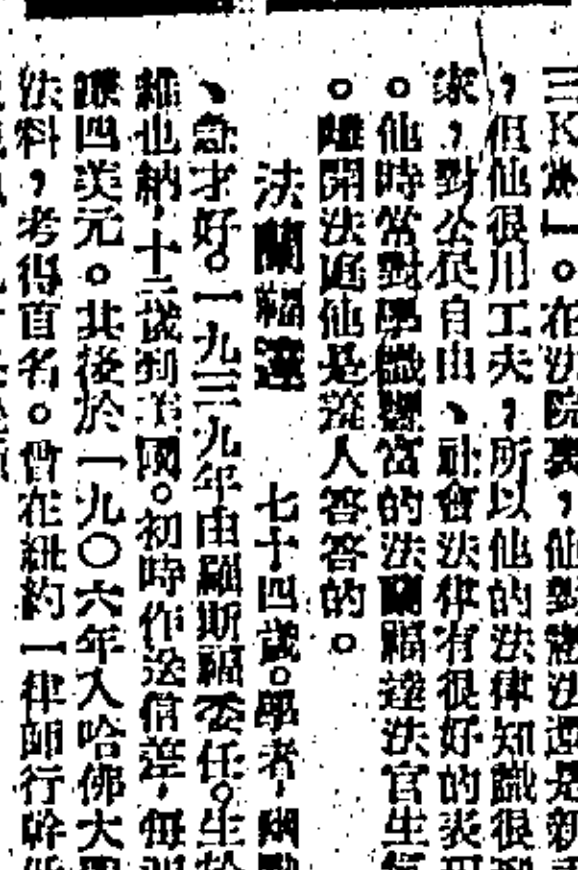 三K黨」。在法院裏,他對憲法還是新
,但他很用工夫,所以他的法律知識很
家,對公民自由、社會法律有很好的表
。他時常對學識豐富的法蘭福達法官生
。離開法庭他是羞人答答的。
法蘭福達 七十四歲。學者,幽默
、急才好。一九三九年由羅斯福委任。生於
維也納,十二歲到美國。初時作送信差,每
賺四美元。其後於一九〇六年入哈佛大學
法科,考得首名。曾在紐約一律師行幹